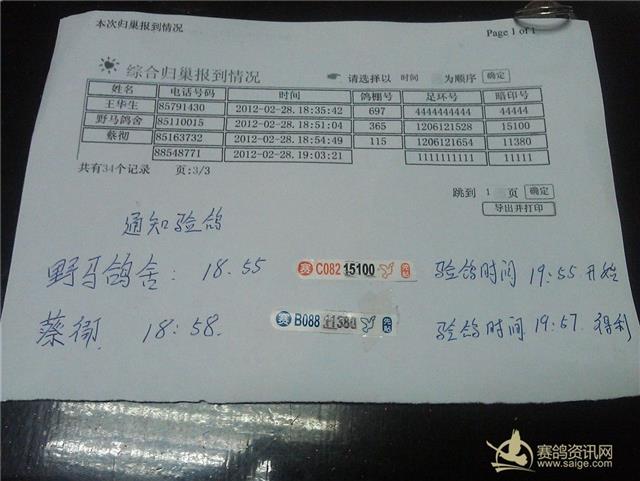 本次归巢报到情况
Page 1 of 1
综合归巢报到情况 请选择以 时间 为顺序 确定
姓名 电话号码 时间 鸽棚号 足环号 暗印号
王华生 85791430 2012-02-28.18:35:42 697 4444444444 44444
野马鸽舍 85110015 2012-02-28.18:51:04 365 1206121528 15100
蔡彻 85163732 2012-02-28.18:54:49 115 1206121654 11380
88548771 2012-02-28.19:03:21 1111111111 11111
共有34个记录 页:3/3
跳到 1 页 确定
导出并打印
通知验鸽
野马鸽舍: 18.55 赛 C082 15100 验鸽时间 19:55 开始
蔡 18:58. 赛 B088 11380 验鸽时间 19:57.
赛鸽资讯网
www.saige.com